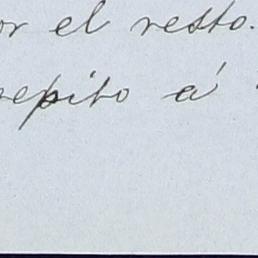 or el resto.
repito á